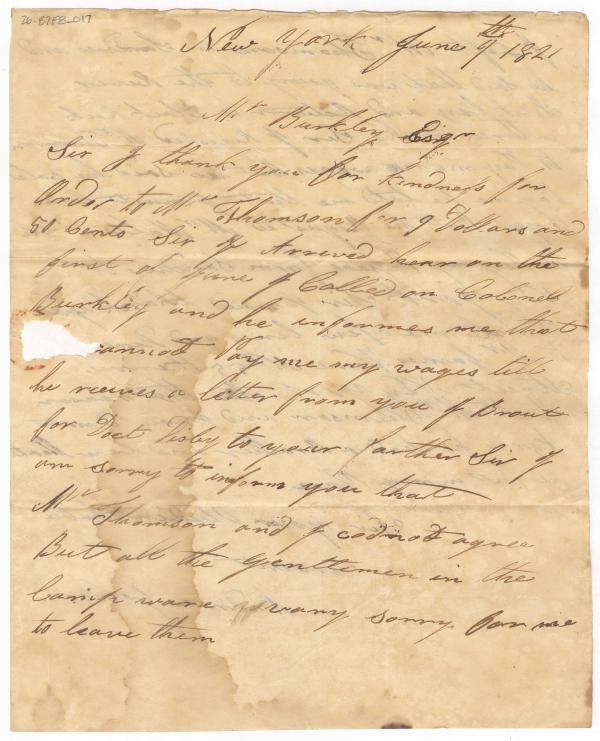 26-87FB-017
New York June 9th 1821
Mr Burkley Esqr
Sir I thank you for kindness for
Order to Mr Thomson for 9 Dollars and
50 Cents Sir I Arrived hear on the
first of June I Called on Colonel
Burkley and he informes me that
annot Pay me my wages till
he receives a letter from you I Brout
for Doct to your farther Sir I
am sorry to inform you that
Mr Thomson and I codnot agree
But all the gentlemen in the
Camp ware vary sorry for me
to leave them